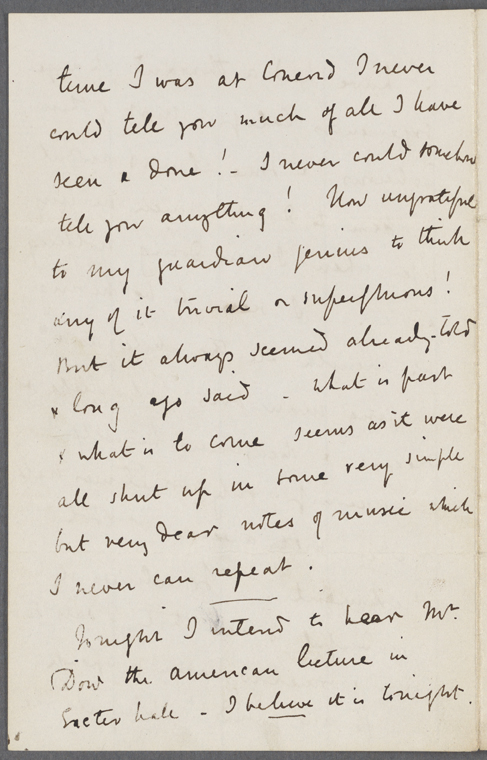 time I was at Concord I never
could tell you much of all I have
seen & done! - I never could somehow
tell you anything! How ungrateful
to my guardian genius to think
any of it trivial or superfluous!
But it always seemed already-told
& long ago said - what is past
& what is to come seems as it were
all shut up in some very simple
but very dear notes of music which
I never can repeat.
Tonight I intend to hear Mr.
Dow the american lecture in
Exeter hall - I believe it is tonight.